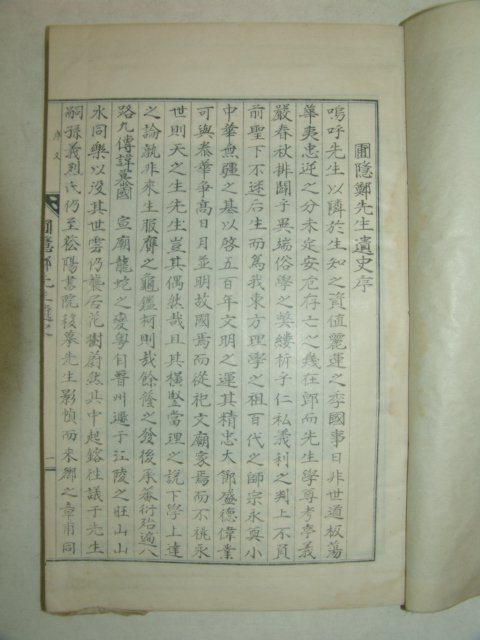 圃隱鄭先生遺史序
嗚呼先生以隣於生知之資値麗運之季國事日非世道板蕩
華夷忠逆之分未定安危存亡之幾在卽而先生學尊考亭義
嚴春秋排闢乎異端俗學之獘縷析乎仁私義利之判上不負
前聖下不迷后生而爲我東方理學之祖百代之師宗永奠小
中華無疆之基以啓五百年文明之運其精忠大節盛德偉業
可與泰華爭高日月並明故國焉而從祀文廟家焉而不祧永
世則天之生先生豈其偶然哉且其橫竪當理之說下學上達
之論孰非來生服膺之龜鑑柯則哉餘隆之發後承蕃衍殆遍八
路九傳諱 宣廟龍蛇之變粤自晉州遯于江陵之旺山山
水同樂以沒其世雲仍襲居花樹蔚然其中起鎔往議于先生
嗣孫義烈氏仍至崧陽書院移摹先生影幀而來鄕之章甫同
序文
圃隱鄭先生遺史
一